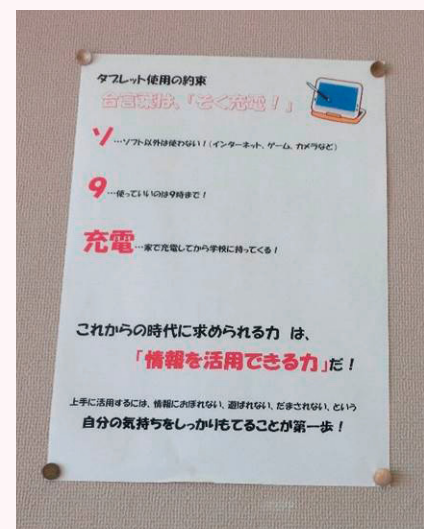 タブレット使用の約束
合言葉は、「そく充電！」
ソ…ソフト以外は使わない！（インターネット、ゲーム、カメラなど）
9…使っていいのは9時まで！
充電…家で充電してから学校に持ってくる！
これからの時代に求められる力 は、
「情報を活用できる力」だ！
上手に活用するには、情報におぼれない、遊ばれない、だまされない、という
自分の気持ちをしっかりもてることが第一歩！